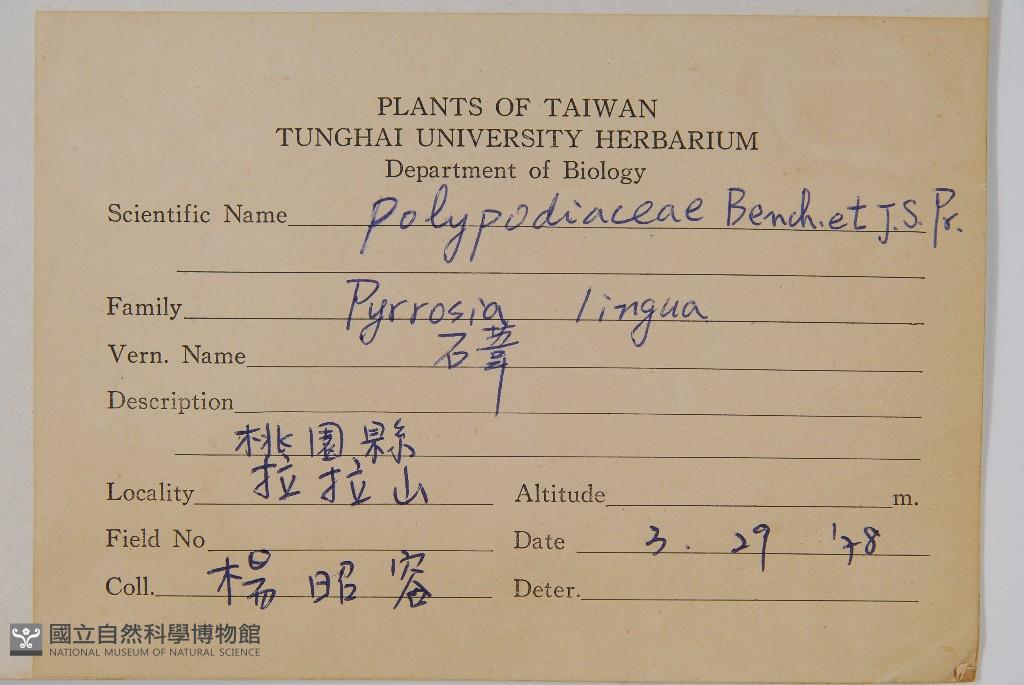 PLANTS OF TAIWAN
TUNGHAI UNIVERSITY HERBARIUM
Department of Biology
Scientific Name polypodiaceae Bench. et J.S. Pr.
Family Pyrrosia lingua
Vern. Name 石葦
Description
桃園縣
Locality 拉拉山 Altitude m.
Field No Date 3. 29 '78
Coll. 楊昭容 Deter.
國立自然科學博物館
NATIONAL MUSEUM OF NATURAL SCIENCE